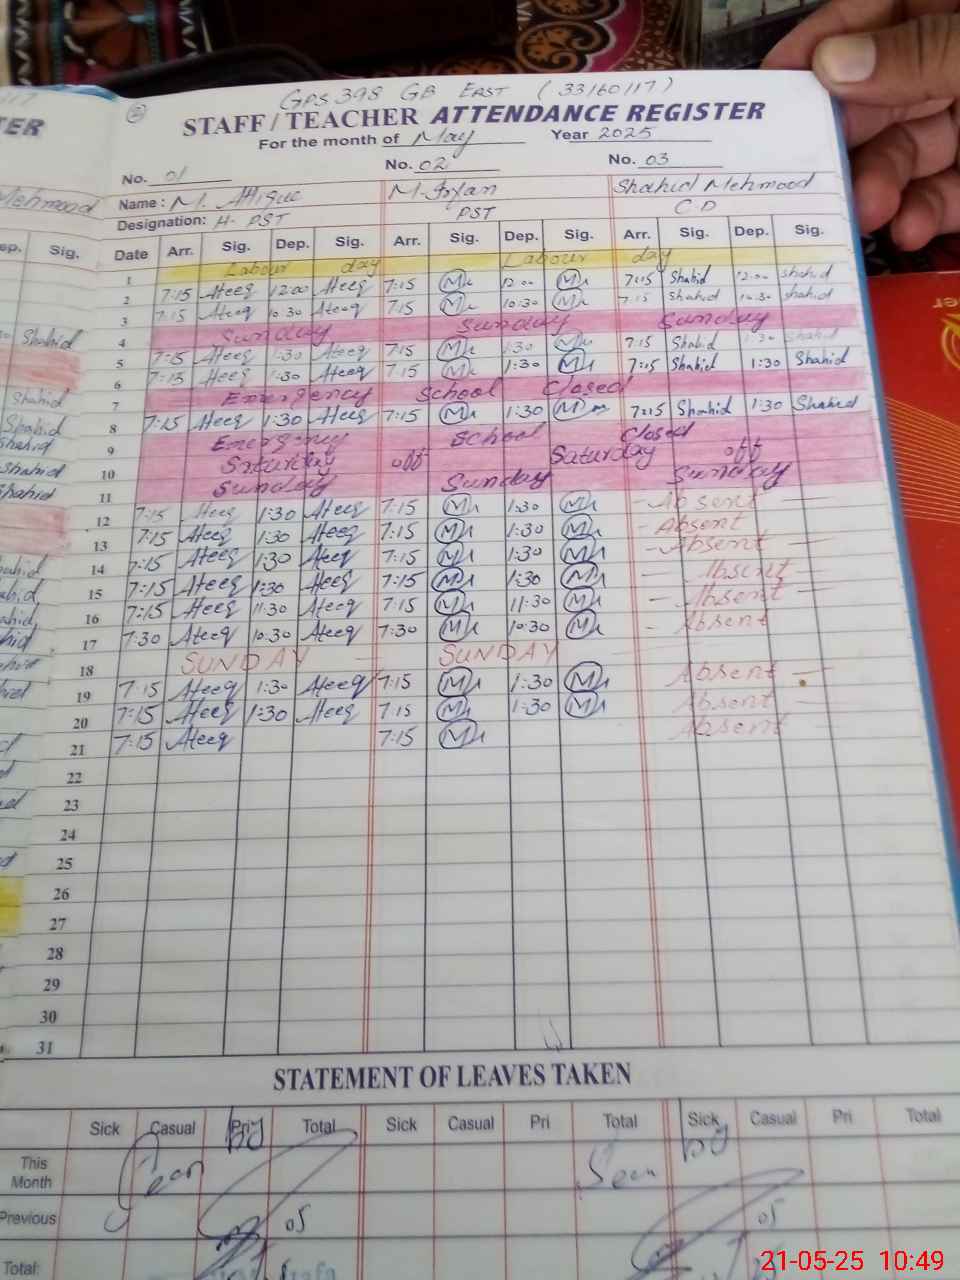 GPS 398 GB EAST (33160117)
STAFF / TEACHER ATTENDANCE REGISTER
For the month of May Year 2025
No. 01 No. 02 No. 03
Name : M. Attique M. Irfan Shahid Mehmood
Designation: H- PST PST C-D
Date Arr. Sig. Dep. Sig. Arr. Sig. Dep. Sig. Arr. Sig. Dep. Sig.
1 Labour day Labour day
2 7:15 Ateeq 12:00 Ateeq 7:15 12:00 7:15 Shahid 12:00 Shahid
3 7:15 Ateeq 10:30 Ateeq 7:15 10:30 7:15 Shahid 10:30 Shahid
4 Sunday Sunday Sunday
5 7:15 Ateeq 1:30 Ateeq 7:15 1:30 7:15 Shahid 1:30 Shahid
6 7:15 Ateeq 1:30 Ateeq 7:15 1:30 7:15 Shahid 1:30 Shahid
7 Emergency School Closed
8 7:15 Ateeq 1:30 Ateeq 7:15 1:30 7:15 Shahid 1:30 Shahid
9 Emergency School Closed
10 Saturday off Saturday off
11 Sunday Sunday Sunday
12 7:15 Ateeq 1:30 Ateeq 7:15 1:30 - Absent -
13 7:15 Ateeq 1:30 Ateeq 7:15 1:30 - Absent
14 7:15 Ateeq 1:30 Ateeq 7:15 1:30 - Absent -
15 7:15 Ateeq 1:30 Ateeq 7:15 1:30 - Absent -
16 7:15 Ateeq 11:30 Ateeq 7:15 11:30 - Absent -
17 7:30 Ateeq 10:30 Ateeq 7:30 10:30 - Absent
18 SUNDAY SUNDAY
19 7:15 Ateeq 1:30 Ateeq 7:15 1:30 Absent -
20 7:15 Ateeq 1:30 Ateeq 7:15 1:30 Absent -
21 7:15 Ateeq 7:15 Absent -
22
23
24
25
26
27
28
29
30
31
STATEMENT OF LEAVES TAKEN
Sick Casual Pri Total Sick Casual Pri Total Sick Casual Pri Total
This Month Seen Seen
Previous 05 05
Total:
21-05-25 10:49